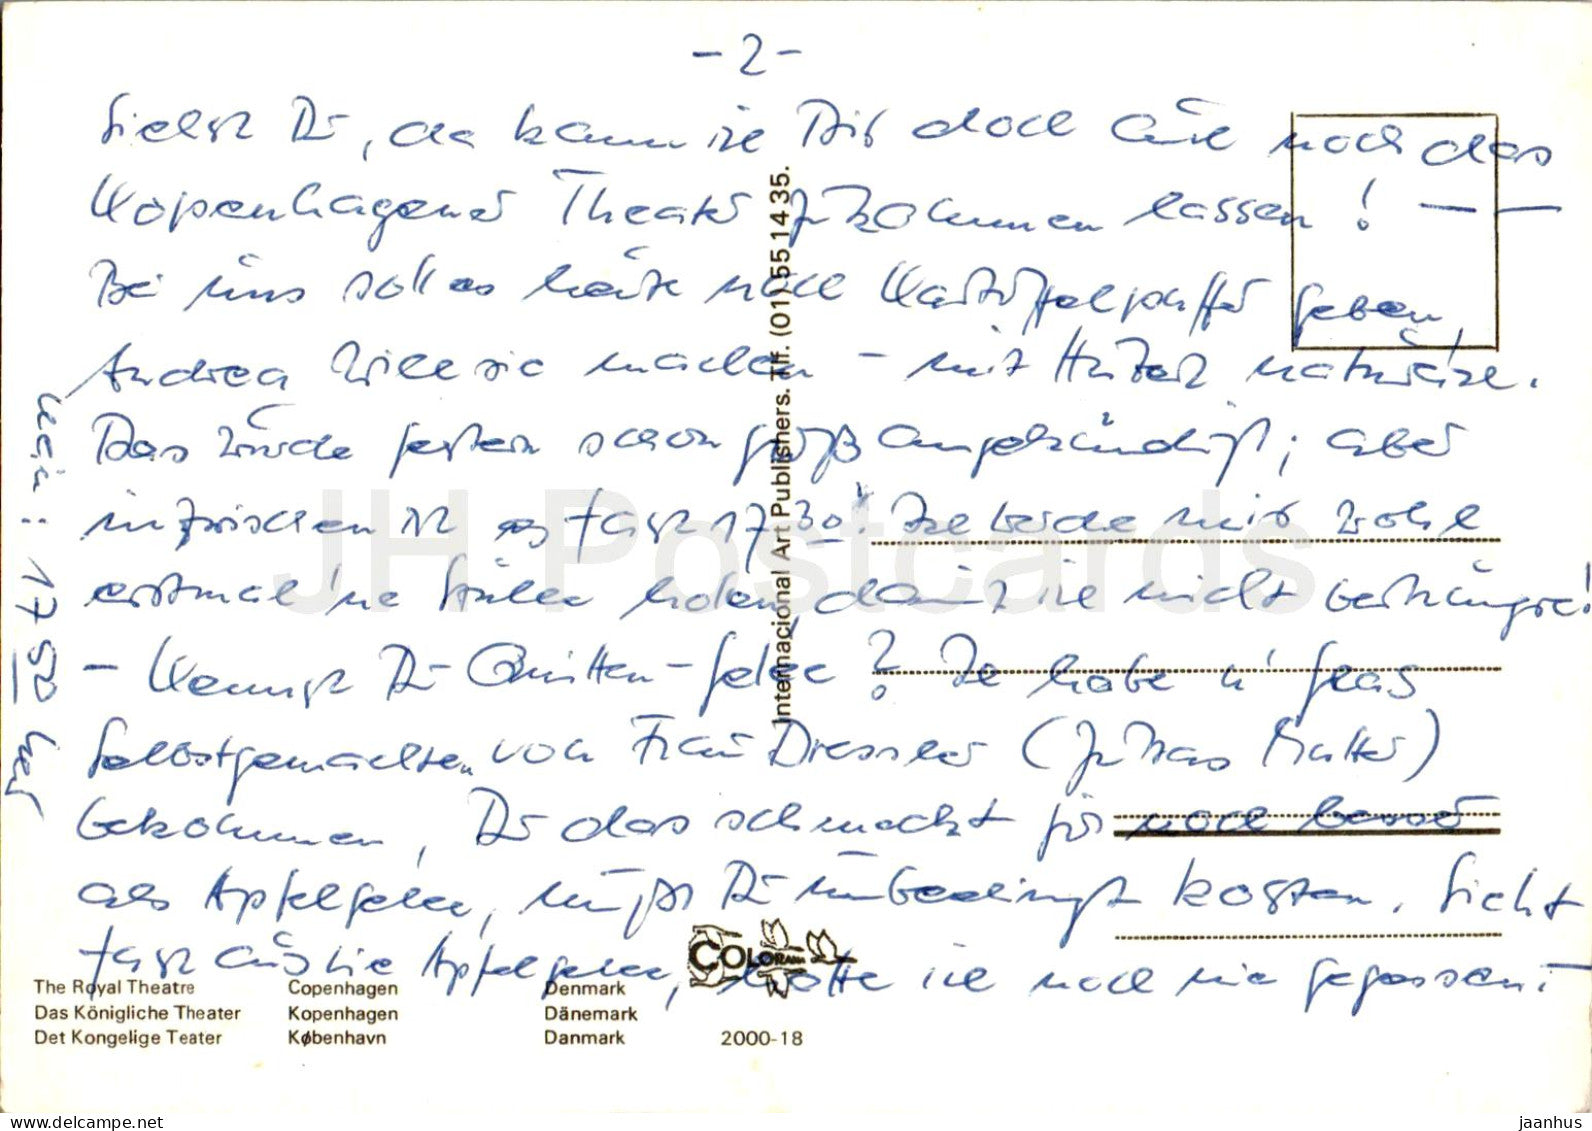 - 2 -
Siehst Du, da kann ich Dir doch auch noch das
Kopenhagener Theater zukommen lassen! — —
Bei uns soll es heute noch Kartoffelpuffer geben,
Andrea will sie machen - mit Hilfe natürlich.
Das wurde gestern schon groß angekündigt; aber
inzwischen ist es fast 17 30! Ich werde mir wohl
erstmal 'ne holen, damit ich nicht verhungre!
- Kennst Du Quitten-Gelee? Ich habe n' Glas
Selbstgemachten von Frau Dressler (Mutter)
bekommen, Du das schmeckt für noch besser
als Apfelgelee, mußt Du unbedingt kosten. Sieht
fast aus wie Apfelgelee, hatte ich noch nie gegessen! -
nein: 17 50 Uhr
Internacional Art Publishers. Tlf. (01) 55 14 35.
COLORAMA
The Royal Theatre Copenhagen Denmark
Das Königliche Theater Kopenhagen Dänemark
Det Kongelige Teater København Danmark
2000-18
JH Postcards
www.delcampe.net
jaanhus